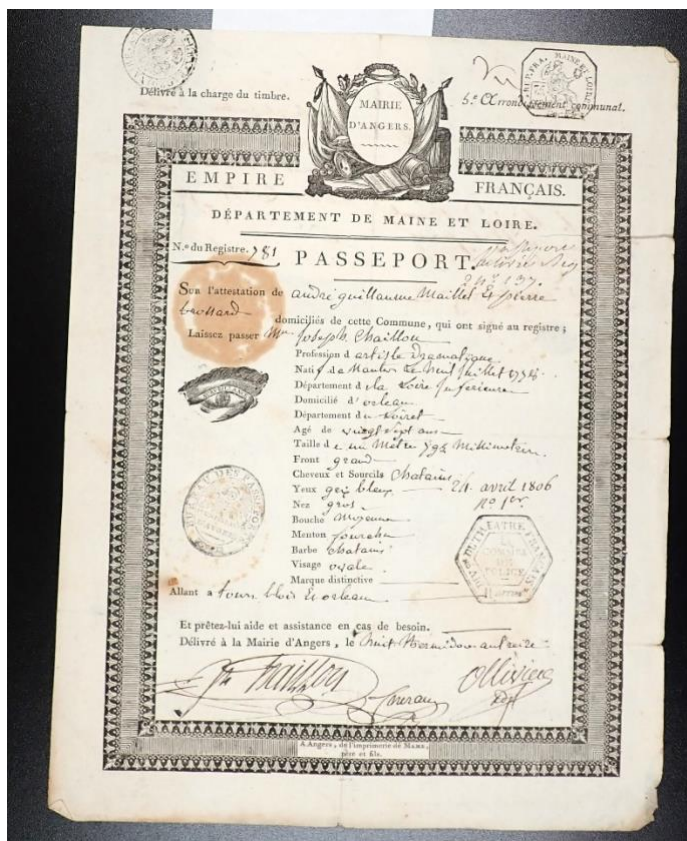 Délivré à la charge du timbre.
5.e Arrondissement communal.
MAIRIE
D'ANGERS.
EMPIRE FRANÇAIS.
DÉPARTEMENT DE MAINE ET LOIRE.
N.o du Registre. 781
PASSEPORT.
n.o 137.
Sur l'attestation de andré guillaume Maillet & pierre
brossard
domiciliés de cette Commune, qui ont signé au registre;
Laissez passer Mr Joseph Chaillou
Profession d artiste Dramatique
Natif de Nantes Le neuf juillet
Département de la Loire inferieure
Domicilié d'orleans
Département du Loiret
Agé de vingt Sept ans
Taille de un Mètre 792 Millimetres.
Front grand
Cheveux et Sourcils Chatains
Yeux gris bleux 24 avril 1806
Nez gros. no 1er.
Bouche Moyenne
Menton fourchu
Barbe chatains
Visage ovale
Marque distinctive
Allant a tours blois & orleans
Et prêtez-lui aide et assistance en cas de besoin.
Délivré à la Mairie d'Angers, le huit thermidor an treize
BUREAU DES PASSEPORTS
THÉATRE FRANÇAIS
COMITÉ
POLICE
Jh Chaillou
Ollivier
A Angers, de l'imprimerie de MAME,
père et fils.